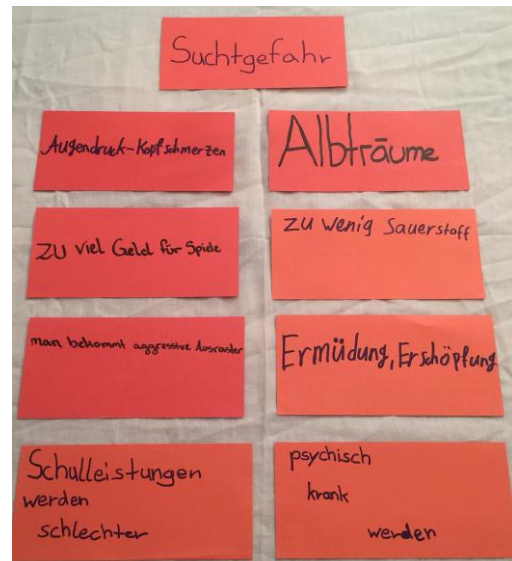 Suchtgefahr
Augendruck-Kopfschmerzen
Albträume
zu viel Geld für Spiele
zu wenig Sauerstoff
man bekommt aggressive Ausraster
Ermüdung, Erschöpfung
Schulleistungen
werden
schlechter
psychisch
krank
werden